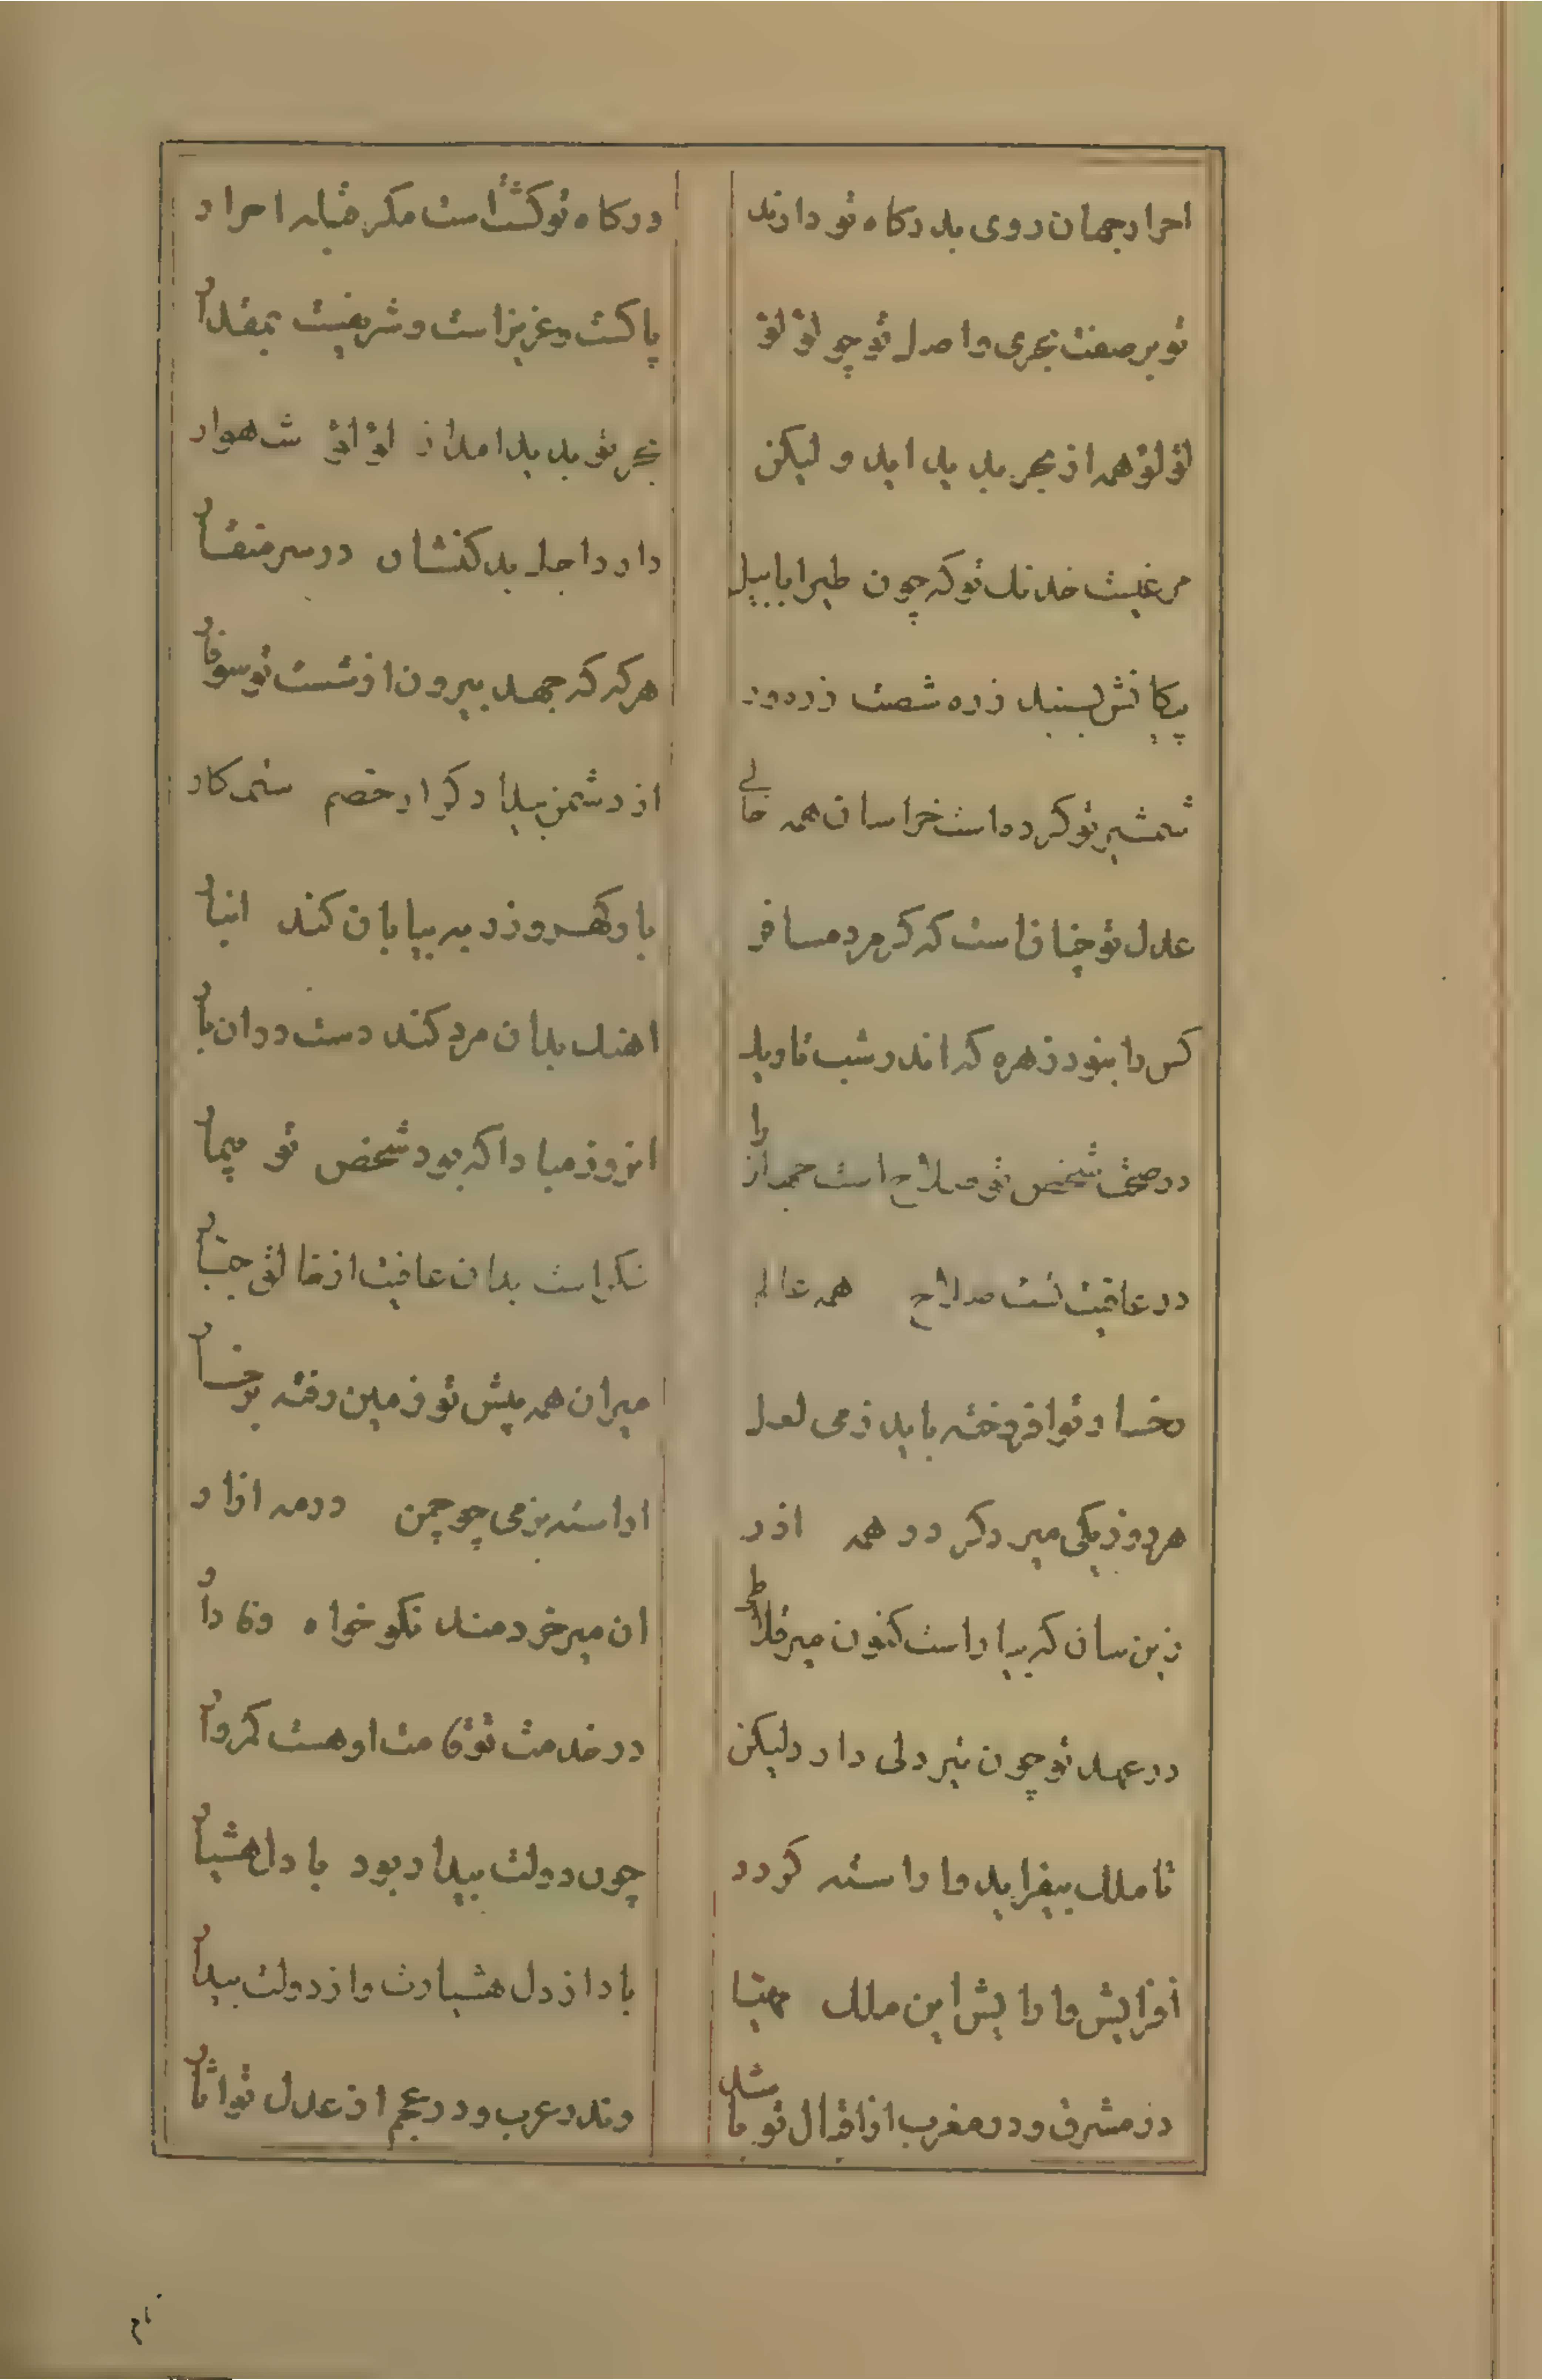 احرار جهان روی بدرکاه تو دارند
درکاه تو کشتست مکر قبله احرار
تو بر صفت بحری و اصل تو چو لؤلؤ
پاکست و عزیز است و شریفست بمقدار
لؤلؤ همه از بحر بدید اید و لیکن
بحر تو بدید امد از لؤلؤ شهوار
مرغیست خدنک تو که چون طیر ابابیل
دارد اجل بدکنشان در سر منقار
پیکانش بسنبد زره شصت زره ور
هر که که جهد بیرون از شست تو سوفار
شمشیر تو کرده است خراسان همه خالی
از دشمن بیدادکر و از خصم ستمکار
عدل تو چنان است که کر مرد مسافر
بار کهر و زر به بیابان کند انبار
کس را نبود زهره که اندر شب تاریک
اهنک بدان مرد کند دست در ان بار
در صحت شخص تو صلاح است جهانرا
ان روز مبادا که بود شخص تو بیمار
در عافیت تست صلاح همه عالم
شکر است بدان عافیت از خالق جبار
رخسار تو افروخته باید ز می لعل
میران همه پیش تو زمین رفته برخسار
هر روز یکی میر دکر در همه اذر
اراسته بزمی چو چمن در مه اذار
زین سان که بیاراست کنون میر
ان میر خردمند نکو خواه وفادار
در عهد تو چون تیر دلی دارد لیکن
در خدمت تو قامت او هست کمروار
تا ملک بیفزاید و اراسته کردد
چون دولت بیدار بود با دل هشیار
افزایش و ارایش این ملک مهیا
باد از دل هشیارت و از دولت بیدار
در مشرق و در مغرب از اقبال تو باشد
وندر عرب و در عجم از عدل تو اثار